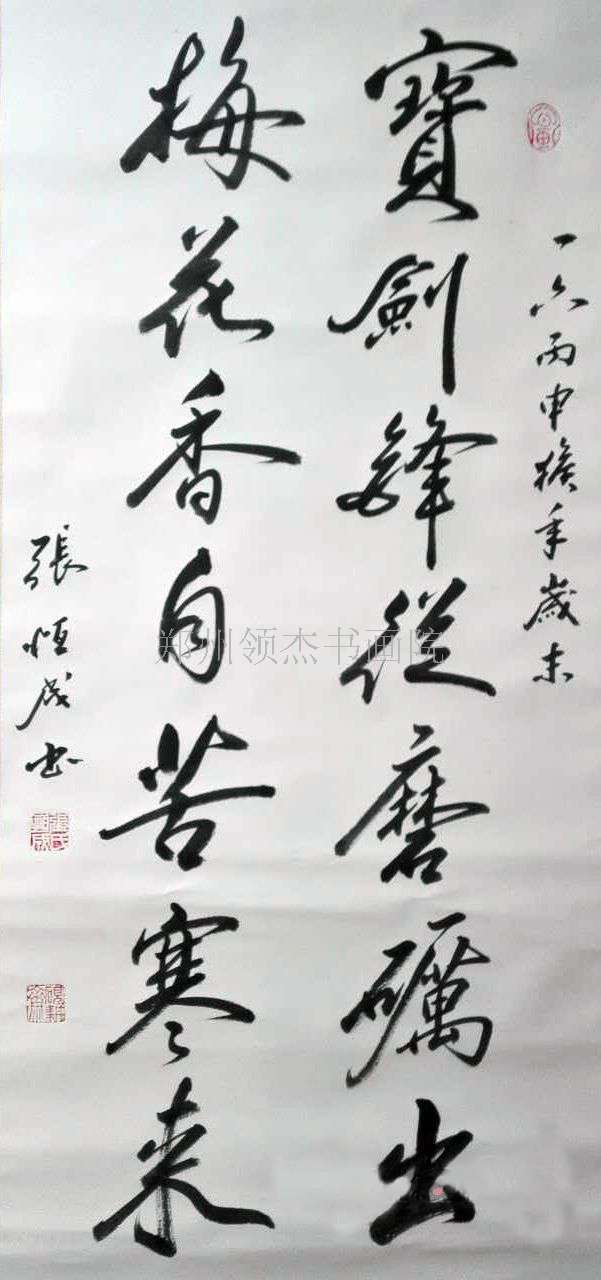 一六丙申猴年歲末
寶劍鋒從磨礪出
梅花香自苦寒来
張恒成书
郑州领杰书画院